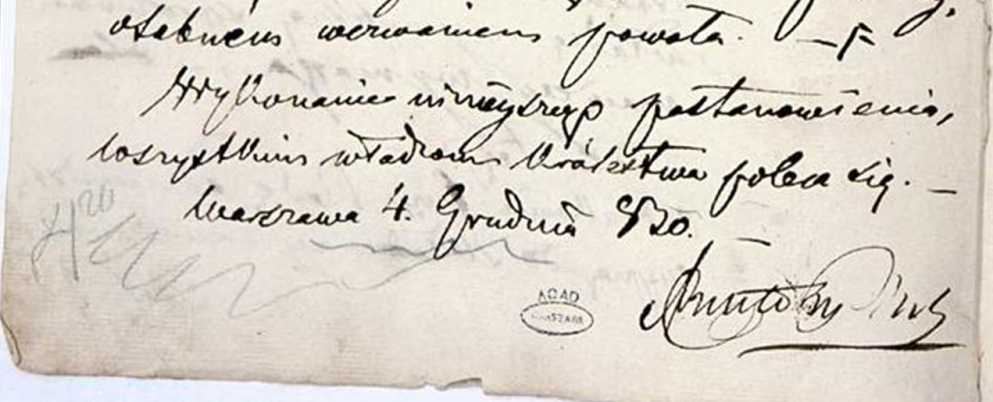 osobnem wezwaniem powoła.
Wykonanie ninieyszego postanowienia,
wszystkim władzom Królestwa poleca się. —
Warszawa 4. Grudnia 830.
20
AGAD
WARSZAWA